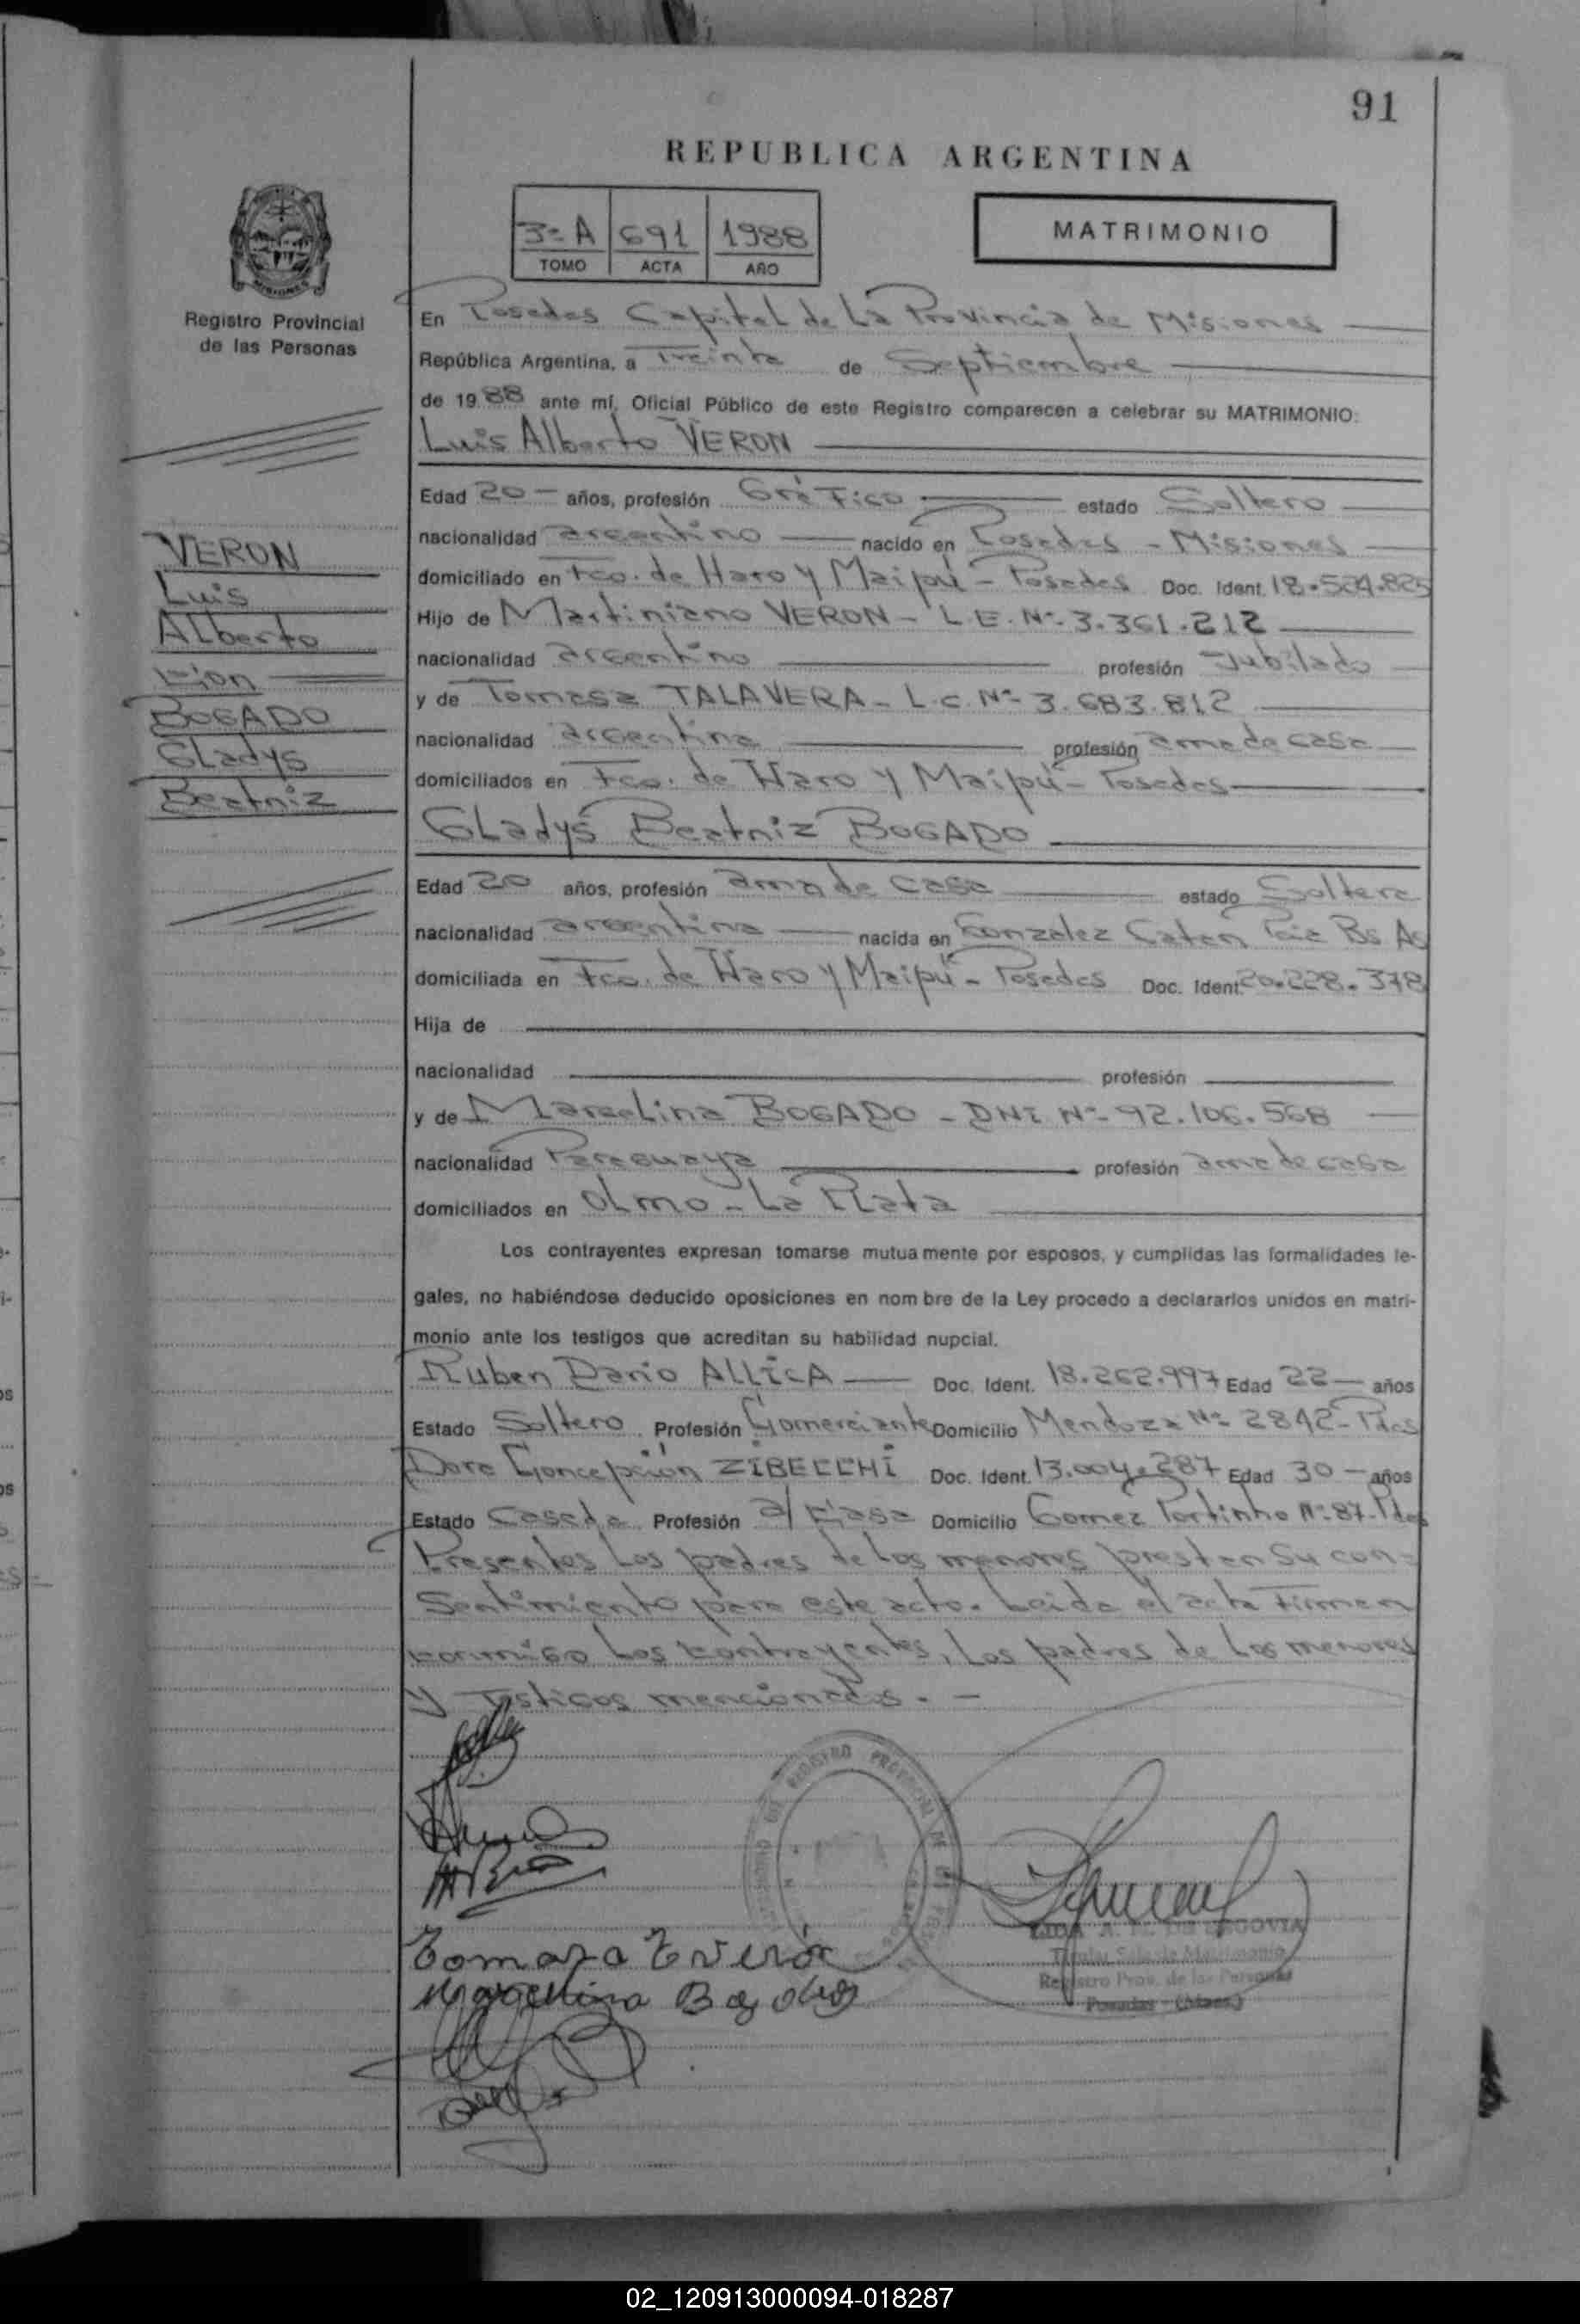 91
REPUBLICA ARGENTINA
3º A 691 1988
TOMO ACTA AÑO
MATRIMONIO
MISIONES
Registro Provincial
de las Personas
En Posadas Capital de La Provincia de Misiones
República Argentina, a Treinta de Septiembre
de 1988 ante mí, Oficial Público de este Registro comparecen a celebrar su MATRIMONIO:
Luis Alberto VERON
Edad 20 años, profesión Gráfico estado Soltero
nacionalidad argentino nacido en Posadas - Misiones
domiciliado en Fco. de Haro y Maipú - Posadas Doc. Ident. 18.524.825
Hijo de Martiniano VERON - L.E. Nº 3.361.212
nacionalidad argentino profesión Jubilado
y de Tomasa TALAVERA - L.C. Nº 3.683.812
nacionalidad argentina profesión ama de casa
domiciliados en Fco. de Haro y Maipú - Posadas
VERON
Luis
Alberto
con
BOGADO
Gladys
Beatriz
Gladys Beatriz BOGADO
Edad 20 años, profesión ama de casa estado Soltera
nacionalidad argentina nacida en Gonzalez Catan Bs As
domiciliada en Fco. de Haro y Maipú - Posadas Doc. Ident. 20.228.378
Hija de
nacionalidad profesión
y de Marcelina BOGADO - DNI Nº 92.106.568
nacionalidad Paraguaya profesión ama de casa
domiciliados en Olmo - La Plata
Los contrayentes expresan tomarse mutuamente por esposos, y cumplidas las formalidades le-
gales, no habiéndose deducido oposiciones en nom bre de la Ley procedo a declararlos unidos en matri-
monio ante los testigos que acreditan su habilidad nupcial.
Ruben Dario ALLICA Doc. Ident. 18.262.997 Edad 22 años
Estado Soltero Profesión Comerciante Domicilio Mendoza Nº 2842 - Pdas
Dora Concepción ZIBECCHI Doc. Ident. 13.004.287 Edad 30 años
Estado Casada Profesión a/ casa Domicilio Gomez Portinho Nº 87 - Pdas
Presentes Los padres de Los menores prestan su con-
sentimiento para este acto. Leida el acta Firman
conmigo Los contrayentes, Los padres de Los menores
y Testigos mencionados. -
REGISTRO PROVINCIAL DE LAS
Tomasa T Verón
Marcelina Bogado
LIDA A. DE SEGOVIA
Titular Sala de Matrimonio
Registro Prov. de las Personas
Posadas - (Mnes.)
02_120913000094-018287